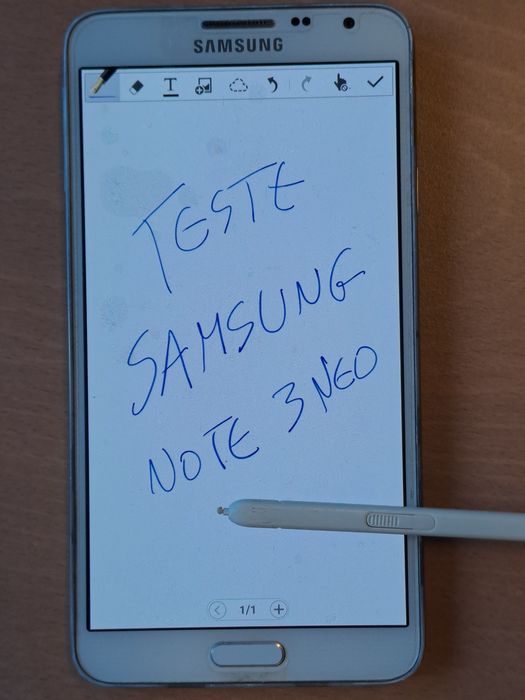 SAMSUNG
T
TESTE
SAMSUNG
NOTE 3 NEO
1/1